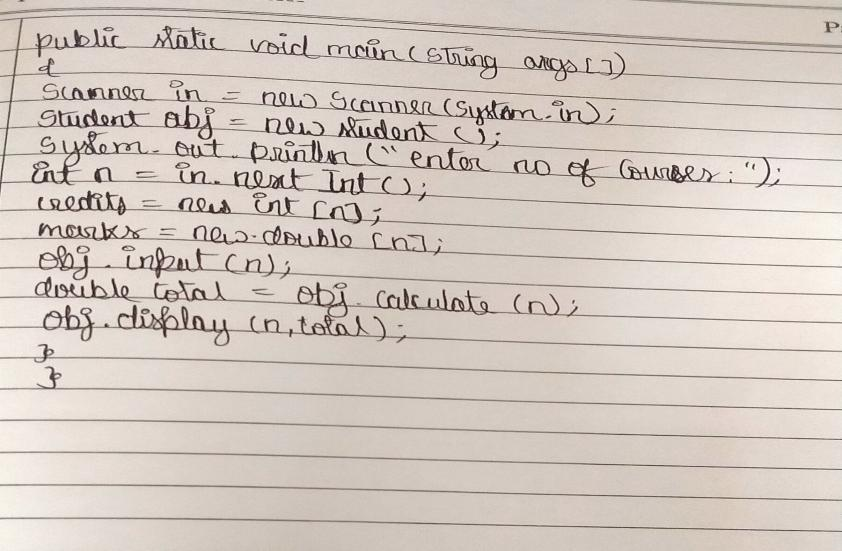 P
public static void main(String args[])
{
Scanner in = new Scanner(System.in);
Student obj = new Student();
System.out.println("enter no of Courses:");
int n = in.next Int();
credits = new int[n];
marks = new.double[n];
obj.input(n);
double total = obj.calculate(n);
obj.display(n,total);
}
}